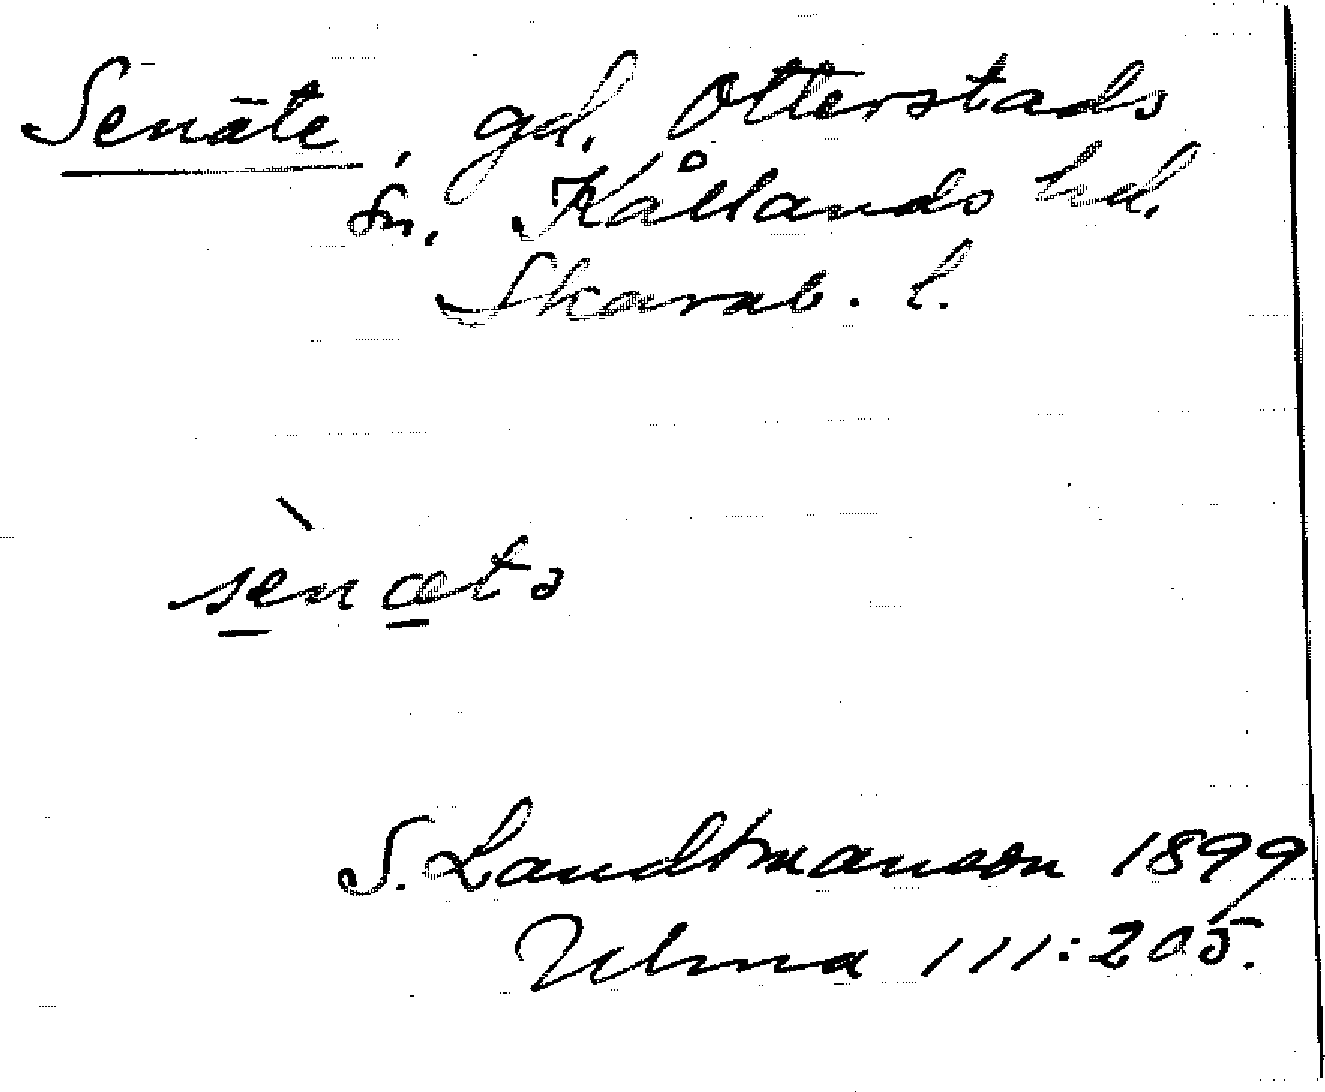 Senäte, gd. Otterstads
sn. Kållands hd.
Skarab. l.
sènætə
S. Landtmanson 1899
Ulma 111:205.